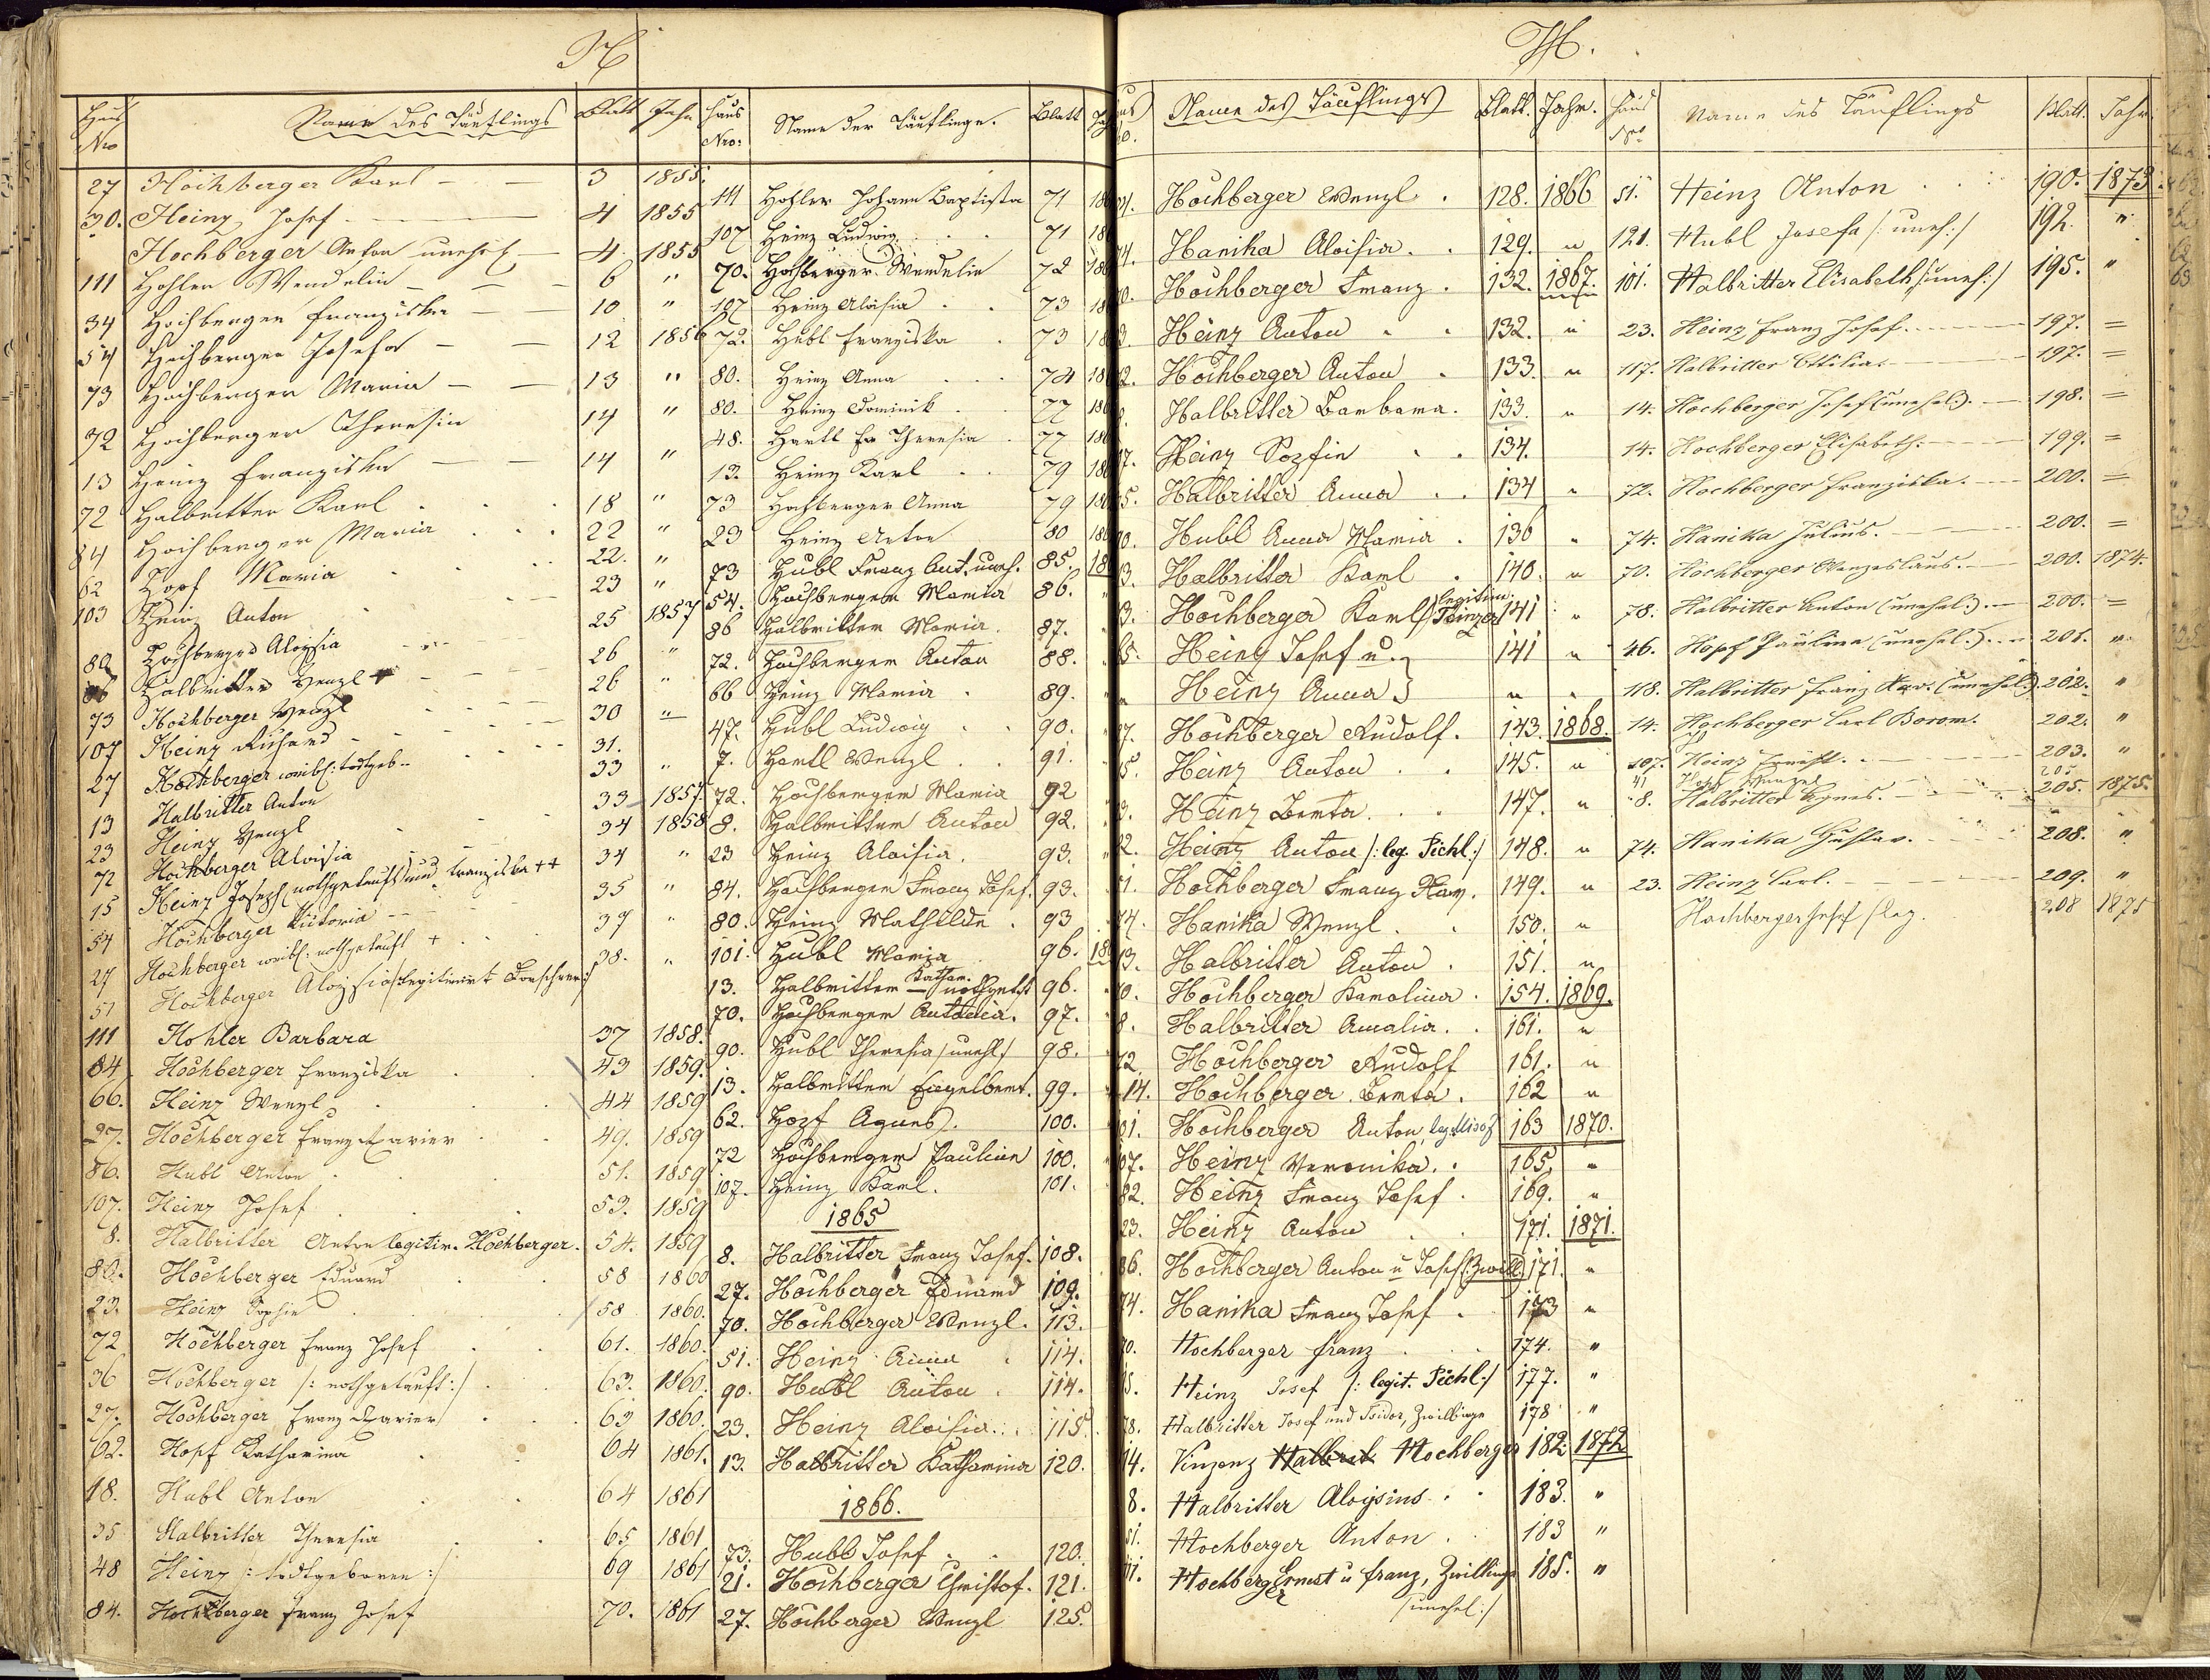 H
Haus Nro Name des Täuflings Blatt Jahr
27 Hochberger Karl 3 1855.
30. Heinz Josef 4 1855
Hochberger Anton unehel. 4 1855
111 Hohler Wendelin 6 "
34 Hochberger Franziska 10 "
54 Hochberger Josefa 12 1856
73 Hochberger Maria 13 "
72 Hochberger Theresia 14 "
13 Heinz Franziska 14 "
72 Halbritter Karl 18 "
84 Hochberger Maria 22 "
62 Hopf Maria 22. "
103 Heinz Anton 23 "
80 Hochberger Aloysia 25 1857
86 Halbritter Wenzl 26 "
73 Hochberger Wenzl 26 "
107 Heinz Richard 30 "
27 Hochberger weibl: todtgeb. 31.
13 Halbritter Anton 33 "
23 Heinz Wenzl 33 1857
72 Hochberger Aloisia 34 1858
15 Heinz Joseph nothgetauft und Franziska ++ 34 "
54 Hochberger Victoria 35 "
27 Hochberger weibl: nothgetauft + 37 "
51 Hochberger Aloysia legitimirt 38. "
111 Hohler Barbara 37 1858.
84 Hochberger Franziska 43 1859.
66. Heinz Wenzl 44 1859
27. Hochberger Franz Xavier 49. 1859
86. Hubl Anton 51. 1859
107. Heinz Josef 53. 1859
8. Halbritter Anton legitim. Hochberger. 54. 1859
80. Hochberger Eduard 58 1860
23. Heinz Sophie 58 1860.
72 Hochberger Franz Josef 61. 1860.
36 Hochberger /: nothgetauft :/ 63. 1860.
27. Hochberger Franz Xavier 63 1860.
62. Hopf Katharina 64 1861.
18. Hubl Anton 64 1861
35 Halbritter Theresia 65 1861
48 Heinz /: todtgeboren :/ 69 1861
84. Hochberger Franz Josef 70. 1861
Haus Nro: Name der Täuflinge. Blatt
111 Hohler Johann Baptista 71
107 Heinz Ludwig 71
70. Hochberger Wendelin 72
107 Heinz Aloisia 73
72. Hubl Franziska 73
80. Heinz Anna 74
80. Heinz Dominik 77
48. Hartl Theresia 77
13. Heinz Karl 79
73 Hochberger Anna 79
23 Heinz Anton 80
73 Hubl Franz Ant. uneh. 85.
54. Hochberger Maria 86.
86 Halbritter Maria 87.
72. Hochberger Anton 88.
66 Heinz Maria 89.
47. Hubl Ludwig 90.
7. Hartl Wenzl 91.
72. Hochberger Maria 92
8. Halbritter Anton 92.
23 Heinz Aloisia. 93.
84. Hochberger Franz Josef. 93.
80. Heinz Mathilde 93
101. Hubl Maria 96.
13. Halbritter Kathar. nothgetft 96.
70. Hochberger Antonia. 97.
90. Hubl Theresia /unehl/ 98.
13. Halbritter Engelbert. 99.
62. Hopf Agnes. 100.
72 Hochberger Paulina 100.
107. Heinz Karl. 101.
1865
8. Halbritter Franz Josef. 108.
27. Hochberger Eduard 109.
70. Hochberger Wenzl. 113.
51. Heinz Anna 114.
90. Hubl Anton 114.
23. Heinz Aloisia. 115.
13. Halbritter Katharina 120.
1866.
73. Hubl Josef 120.
21. Hochberger Christof. 121.
27. Hochberger Wenzl 125.
H.
Name des Täuflings Blatt. Jahr.
Hochberger Wenzl. 128. 1866
Hanika Aloisia. 129. "
Hochberger Franz. 132. 1867.
Heinz Anton 132. "
Hochberger Anton 133. "
Halbritter Barbara. 133. "
Heinz Sofia 134.
Halbritter Anna 134 "
Hubl Anna Maria. 136 "
Halbritter Karl 140. "
Hochberger Karl legitim. 141 "
Heinz Josef u. 141 "
Heinz Anna " "
Hochberger Rudolf. 143. 1868.
Heinz Anton 145. "
Heinz Berta. 147. "
Heinz Anton /: leg. Pichl :/ 148. "
Hochberger Franz Xav. 149. "
74. Hanika Wenzl. 150. "
Halbritter Anton 151. "
Hochberger Karolina. 154. 1869.
8. Halbritter Amalia. 161. "
72. Hochberger Rudolf 161. "
14. Hochberger Berta. 162 "
Hochberger Anton, 163 1870.
Heinz Veronika. 165. "
82. Heinz Franz Josef. 169. "
23. Heinz Anton 171. 1871.
86. Hochberger Anton u Josef /: Zwill: 171. "
74. Hanika Franz Josef. 173 "
Hochberger Franz 174. "
Heinz Josef /: legit. Pichl :/ 177. "
78. Halbritter Josef und Isidor, Zwillinge 178 "
14. Vinzenz Halbrit Hochberger 182. 1872
8. Halbritter Aloysius 183. "
51. Hochberger Anton. 183 "
Hochberger Ernest u Franz, Zwillinge 185. "
/unehel:/
Haus Nro Name des Täuflings Blatt. Jahr.
51. Heinz Anton 190. 1873.
121. Hubl Josefa /: uneh: / 192. "
101. Halbritter Elisabeth /: uneh: / 195. "
23. Heinz Franz Josef. 197. =
117. Halbritter Ottilia. 197. =
14. Hochberger Josef (unehel.). 198. =
14. Hochberger Elisabeth. 199. =
72. Hochberger Franziska. 200. =
74. Hanika Julius. 200. =
70. Hochberger Wenzeslaus. 200. 1874.
78. Halbritter Anton (unehel.). 200. =
46. Hopf Paulina (unehel.). 201. "
118. Halbritter Franz Xav. (unehel.). 202. "
14. Hochberger Carl Borom. 202. "
107. Heinz 203. "
41 Hopf Wenzel 205
8. Halbritter Agnes. 205. 1875.
74. Hanika Gustav. 208. "
23. Heinz Carl. 209. "
Hochberger Josef /leg. 208 1875